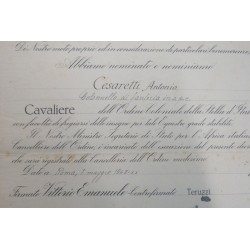 Di Nostro motu proprio ed in considerazione di particolari benemerenze
Abbiamo nominato e nominiamo
Cesaretti Antonio
Cavaliere dell'Ordine Coloniale della Stella d'
con facoltà di fregiarsi delle insegne per tale Equestre grado stabilite.
Il Nostro Ministro Segretario di Stato per l'Africa Italiana
Cancelliere dell'Ordine, è incaricato della esecuzione del presente
che sarà registrato alla Cancelleria dell'Ordine medesimo.
Dato a Roma,
Firmato Vittorio Emanuele Controfirmato Teruzzi